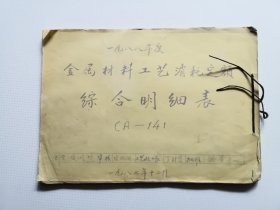 一九八八年度
金属材料工艺消耗定额
综合明细表
CA-141
一九八七年十二月